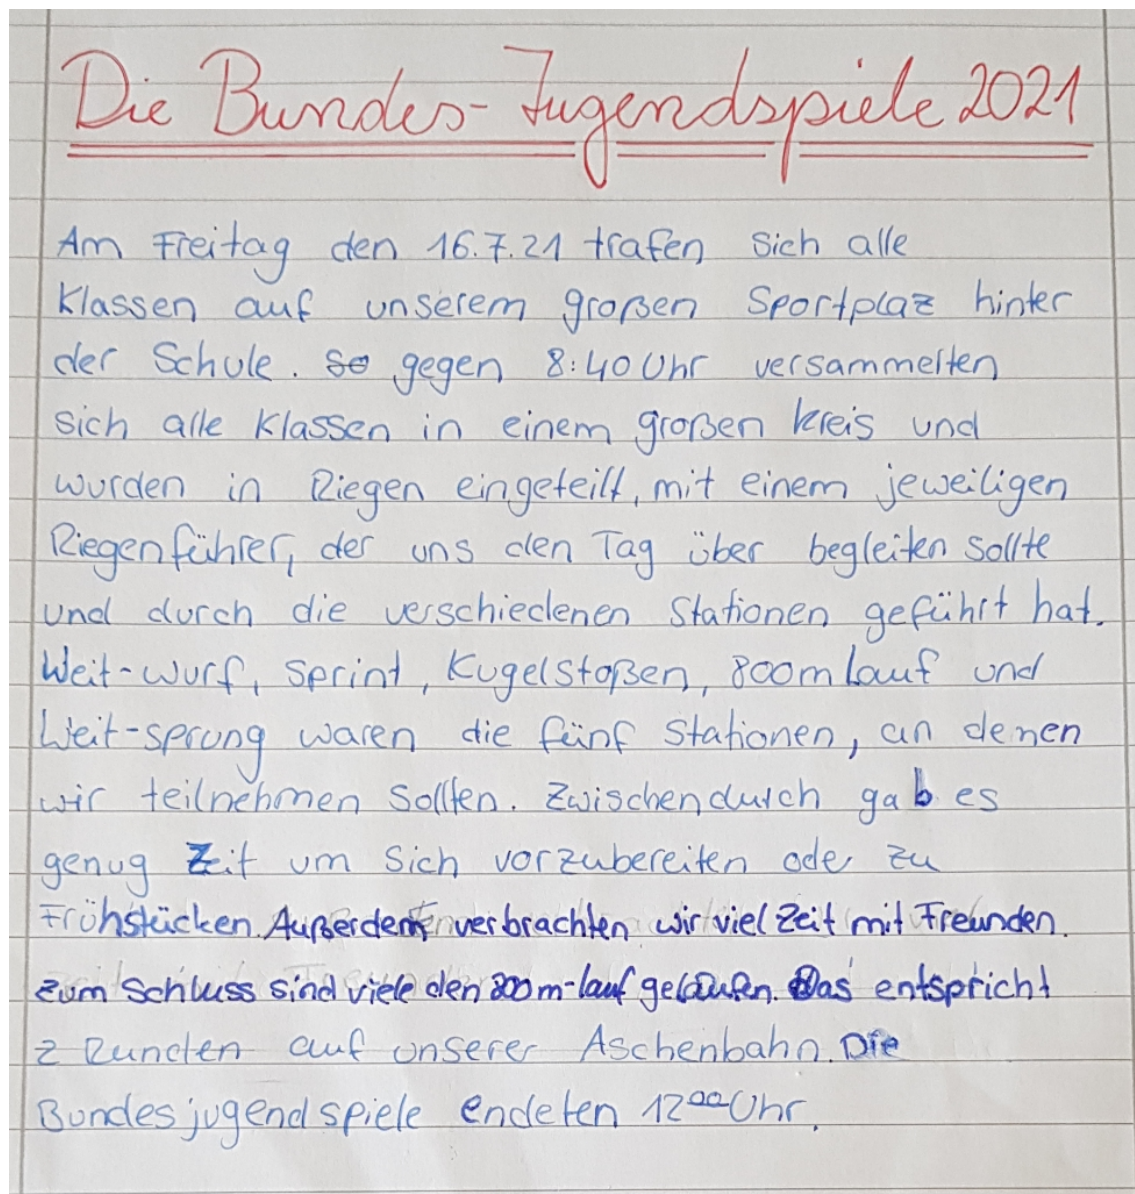 Die Bundes-Jugendspiele 2021
Am Freitag den 16.7.21 trafen sich alle
Klassen auf unserem großen Sportplaz hinter
der Schule. so gegen 8:40 Uhr versammelten
sich alle Klassen in einem großen Kreis und
wurden in Riegen eingeteilt, mit einem jeweiligen
Riegenführer, der uns den Tag über begleiten sollte
und durch die verschiedenen Stationen geführt hat.
Weit-wurf, Sprint, Kugelstoßen, 800m Lauf und
Weit-sprung waren die fünf Stationen, an denen
wir teilnehmen sollten. Zwischendurch gab es
genug Zeit um sich vorzubereiten oder zu
Frühstücken. Außerdem verbrachten wir viel Zeit mit Freunden.
Zum Schluss sind viele den 800m-lauf gelaufen. Das entspricht
2 Runden auf unserer Aschenbahn. Die
Bundesjugendspiele endeten 12⁰⁰ Uhr.